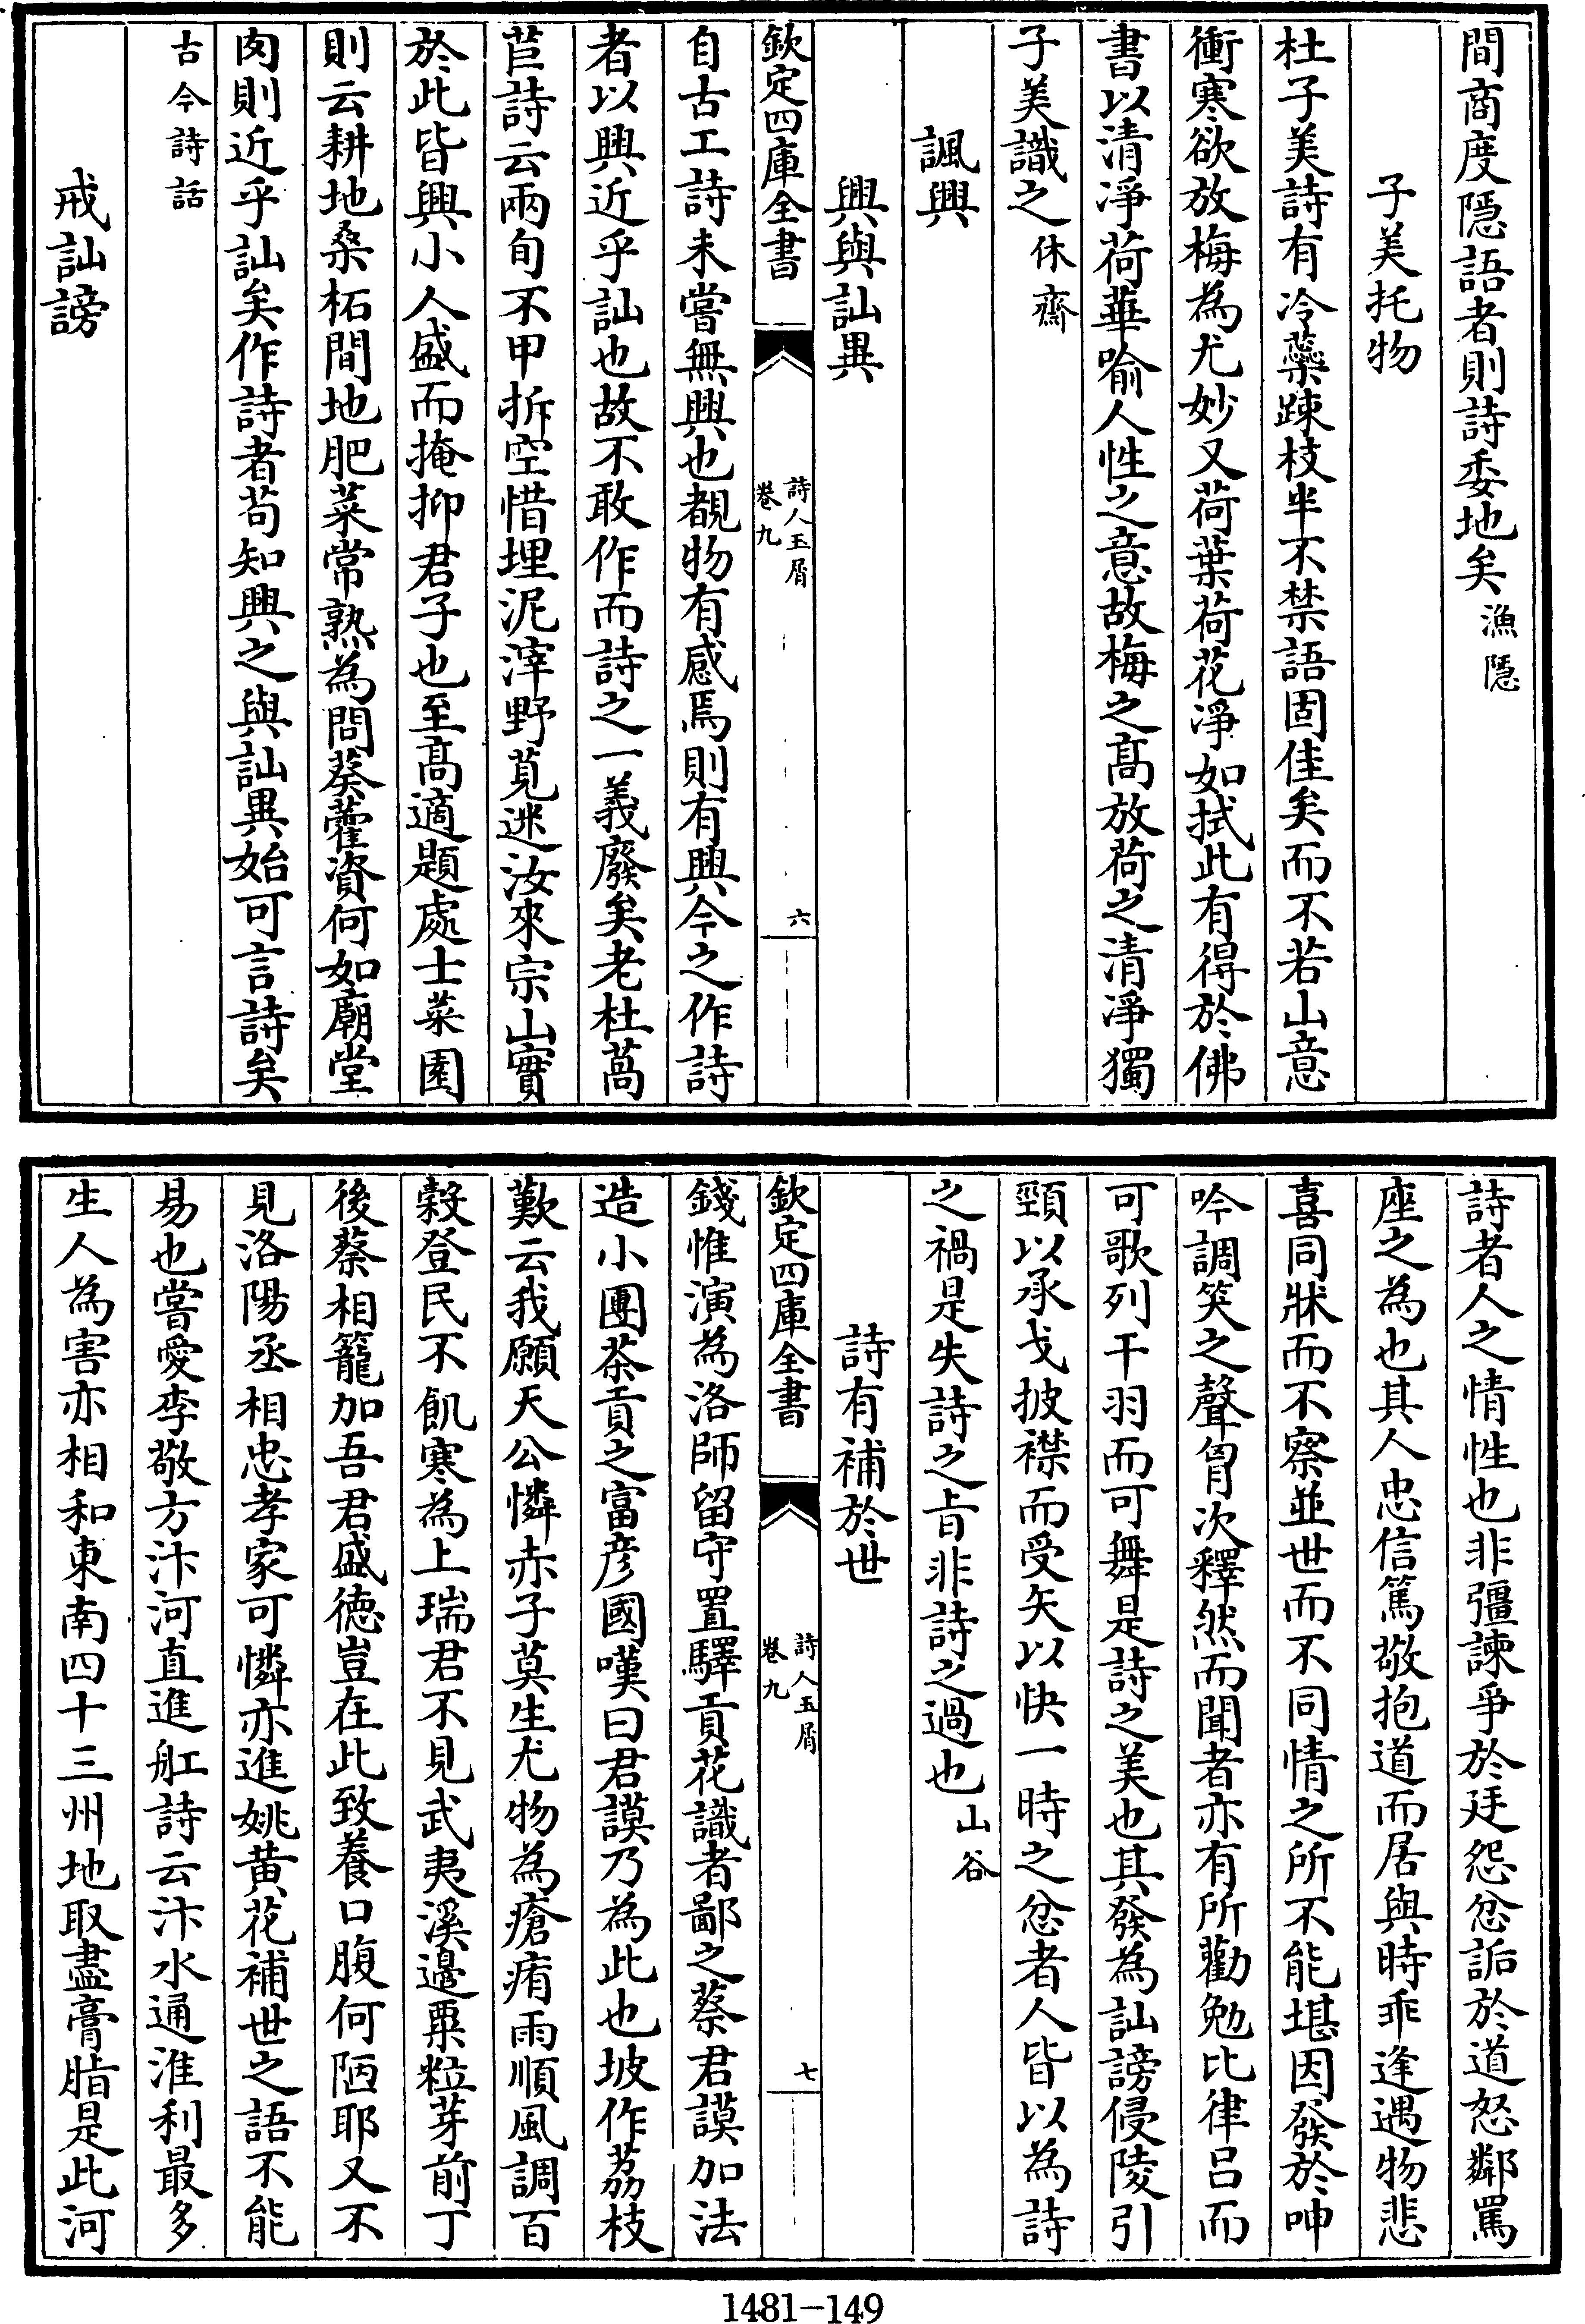 間商度隱語者則詩委地矣漁隱
子美托物
杜子美詩有冷蘂踈枝半不禁語固佳矣而不若山意
衝寒欲放梅為尤妙又荷葉荷花淨如拭此有得於佛
書以清淨荷華喻人性之意故梅之髙放荷之清淨獨
子美識之休齋
諷興
興與訕異
欽定四庫全書
詩人玉屑
卷九
六
自古工詩未嘗無興也覩物有感焉則有興今之作詩
者以興近乎訕也故不敢作而詩之一義廢矣老杜萵
苣詩云兩旬不甲拆空惜埋泥滓野莧迷汝來宗山實
於此皆興小人盛而掩抑君子也至髙適題處士菜園
則云耕地桑柘間地肥菜常熟為問葵藿資何如廟堂
肉則近乎訕矣作詩者苟知興之與訕異始可言詩矣
古今詩話
戒訕謗
詩者人之情性也非彊諫爭於廷怨忿詬於道怒鄰罵
座之為也其人忠信篤敬抱道而居與時乖逢遇物悲
喜同牀而不察並世而不同情之所不能堪因發於呻
吟調笑之聲胷次釋然而聞者亦有所勸勉比律呂而
可歌列干羽而可舞是詩之美也其發為訕謗侵陵引
頸以承戈披襟而受矢以快一時之忿者人皆以為詩
之禍是失詩之㫖非詩之過也山谷
詩有補於世
欽定四庫全書
詩人玉屑
卷九
七
錢惟演為洛師留守置驛貢花識者鄙之蔡君謨加法
造小團茶貢之富彦國嘆曰君謨乃為此也坡作荔枝
歎云我願天公憐赤子莫生尤物為瘡痏雨順風調百
穀登民不飢寒為上瑞君不見武夷溪邉粟粒芽前丁
後蔡相籠加吾君盛徳豈在此致養口腹何陋耶又不
見洛陽丞相忠孝家可憐亦進姚黄花補世之語不能
易也嘗愛李敬方汴河直進舡詩云汴水通淮利最多
生人為害亦相和東南四十三州地取盡膏脂是此河
1481-149